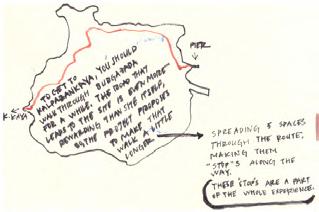 PIER
K.KAYA
TO GET TO
KALPAZANKAYA, YOU SHOULD
WALK THROUGH BURGAZADA
FOR A WHILE. THE ROAD THAT
LEADS TO THE SITE IS EVEN MORE
REWARDING THAN SITE ITSELF,
SO THE PROJECT PROPOSES
TO MAKE THAT
WALK A LITTLE
LONGER
SPREADING 5 SPACES
THROUGH THE ROUTE,
MAKING THEM
"STOP"S ALONG THE
WAY.
THESE "STOP"S ARE A PART
OF THE WHOLE EXPERIENCE.